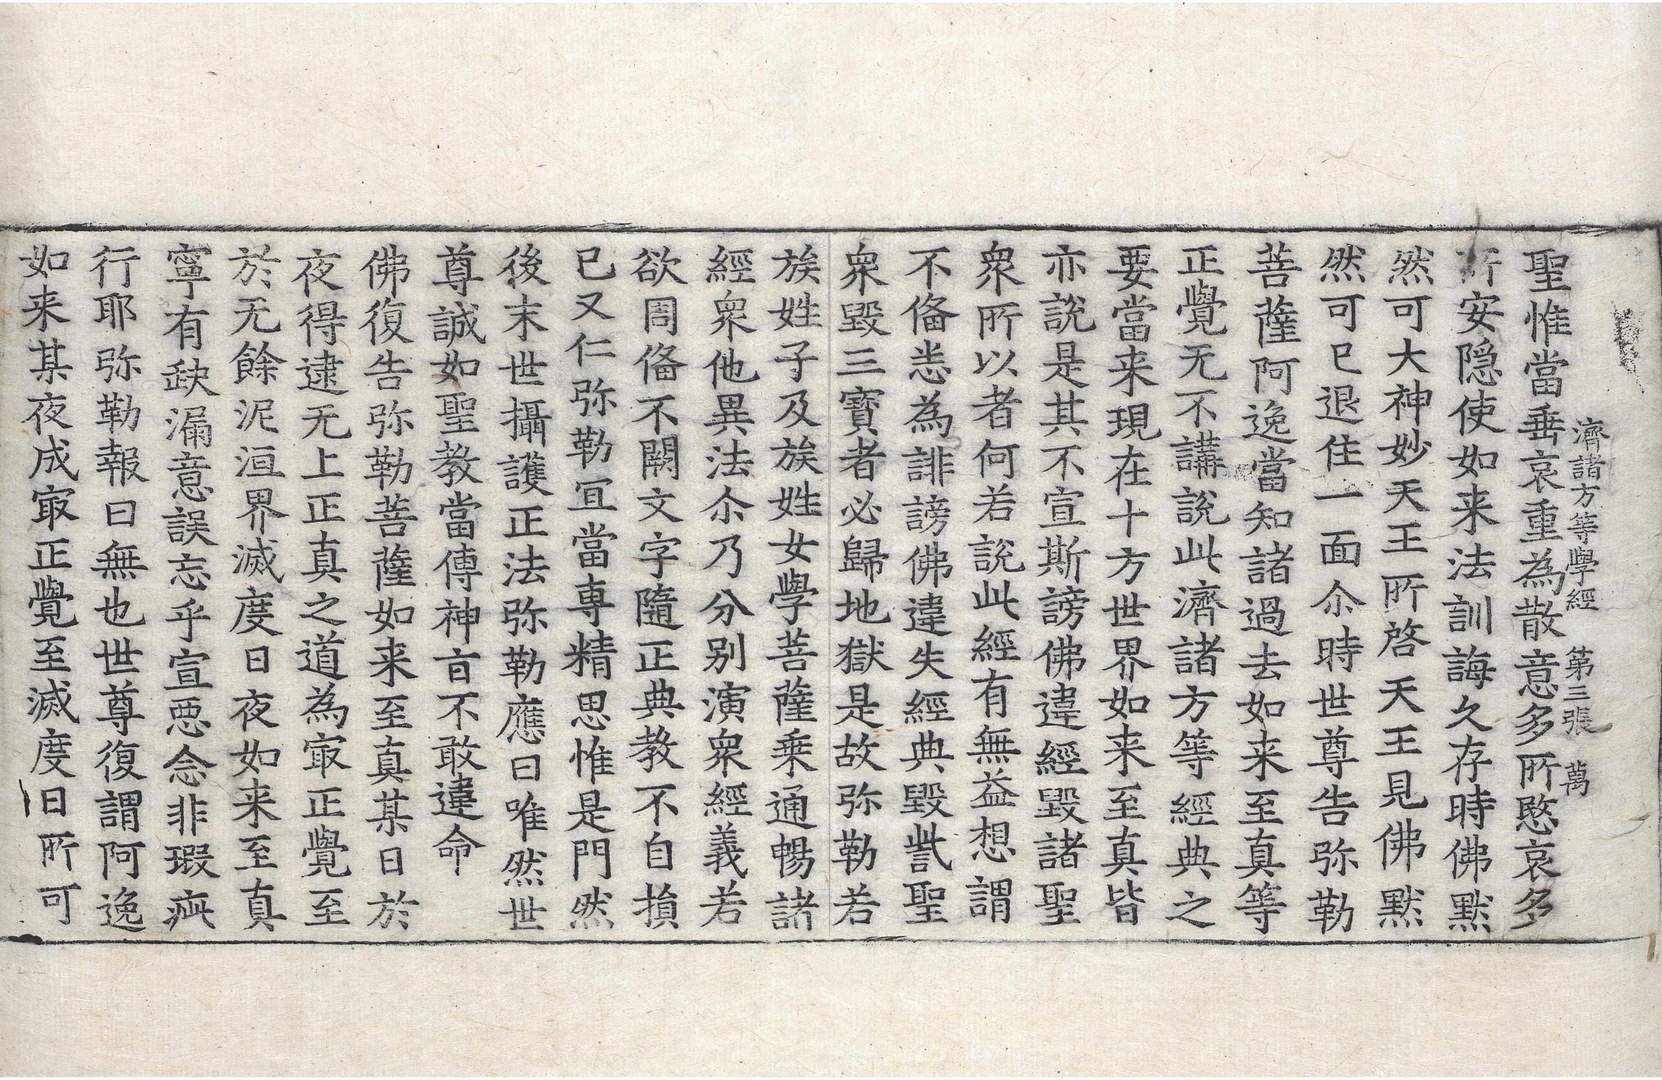 濟諸方等學經 第三張 萬
聖惟當垂哀重為散意多所愍哀多
所安隐使如来法訓誨久存時佛黙
然可大神妙天王所啓天王見佛黙
然可已退住一面尒時世尊告弥勒
菩薩阿逸當知諸過去如来至真等
正覺无不講說此濟諸方等經典之
要當来現在十方世界如来至真皆
亦說是其不宣斯謗佛違經毀諸聖
衆所以者何若說此經有無益想謂
不俻恙為誹謗佛違失經典毀呰聖
衆毀三寶者必歸地獄是故弥勒若
族姓子及族姓女學菩薩乗通暢諸
經衆他異法尒乃分別演衆經義若
欲周俻不闕文字隨正典教不自損
已又仁弥勒冝當専精思惟是門然
後末世攝護正法弥勒應曰唯然世
尊誠如聖教當傳神㫖不敢違命
佛復告弥勒菩薩如来至真某日於
夜得逮无上正真之道為㝡正覺至
於无餘泥洹界滅度日夜如来至真
寧有缺漏意誤忘乎宣惡念非瑕疵
行耶弥勒報曰無也世尊復謂阿逸
如来某夜成㝡正覺至滅度日所可